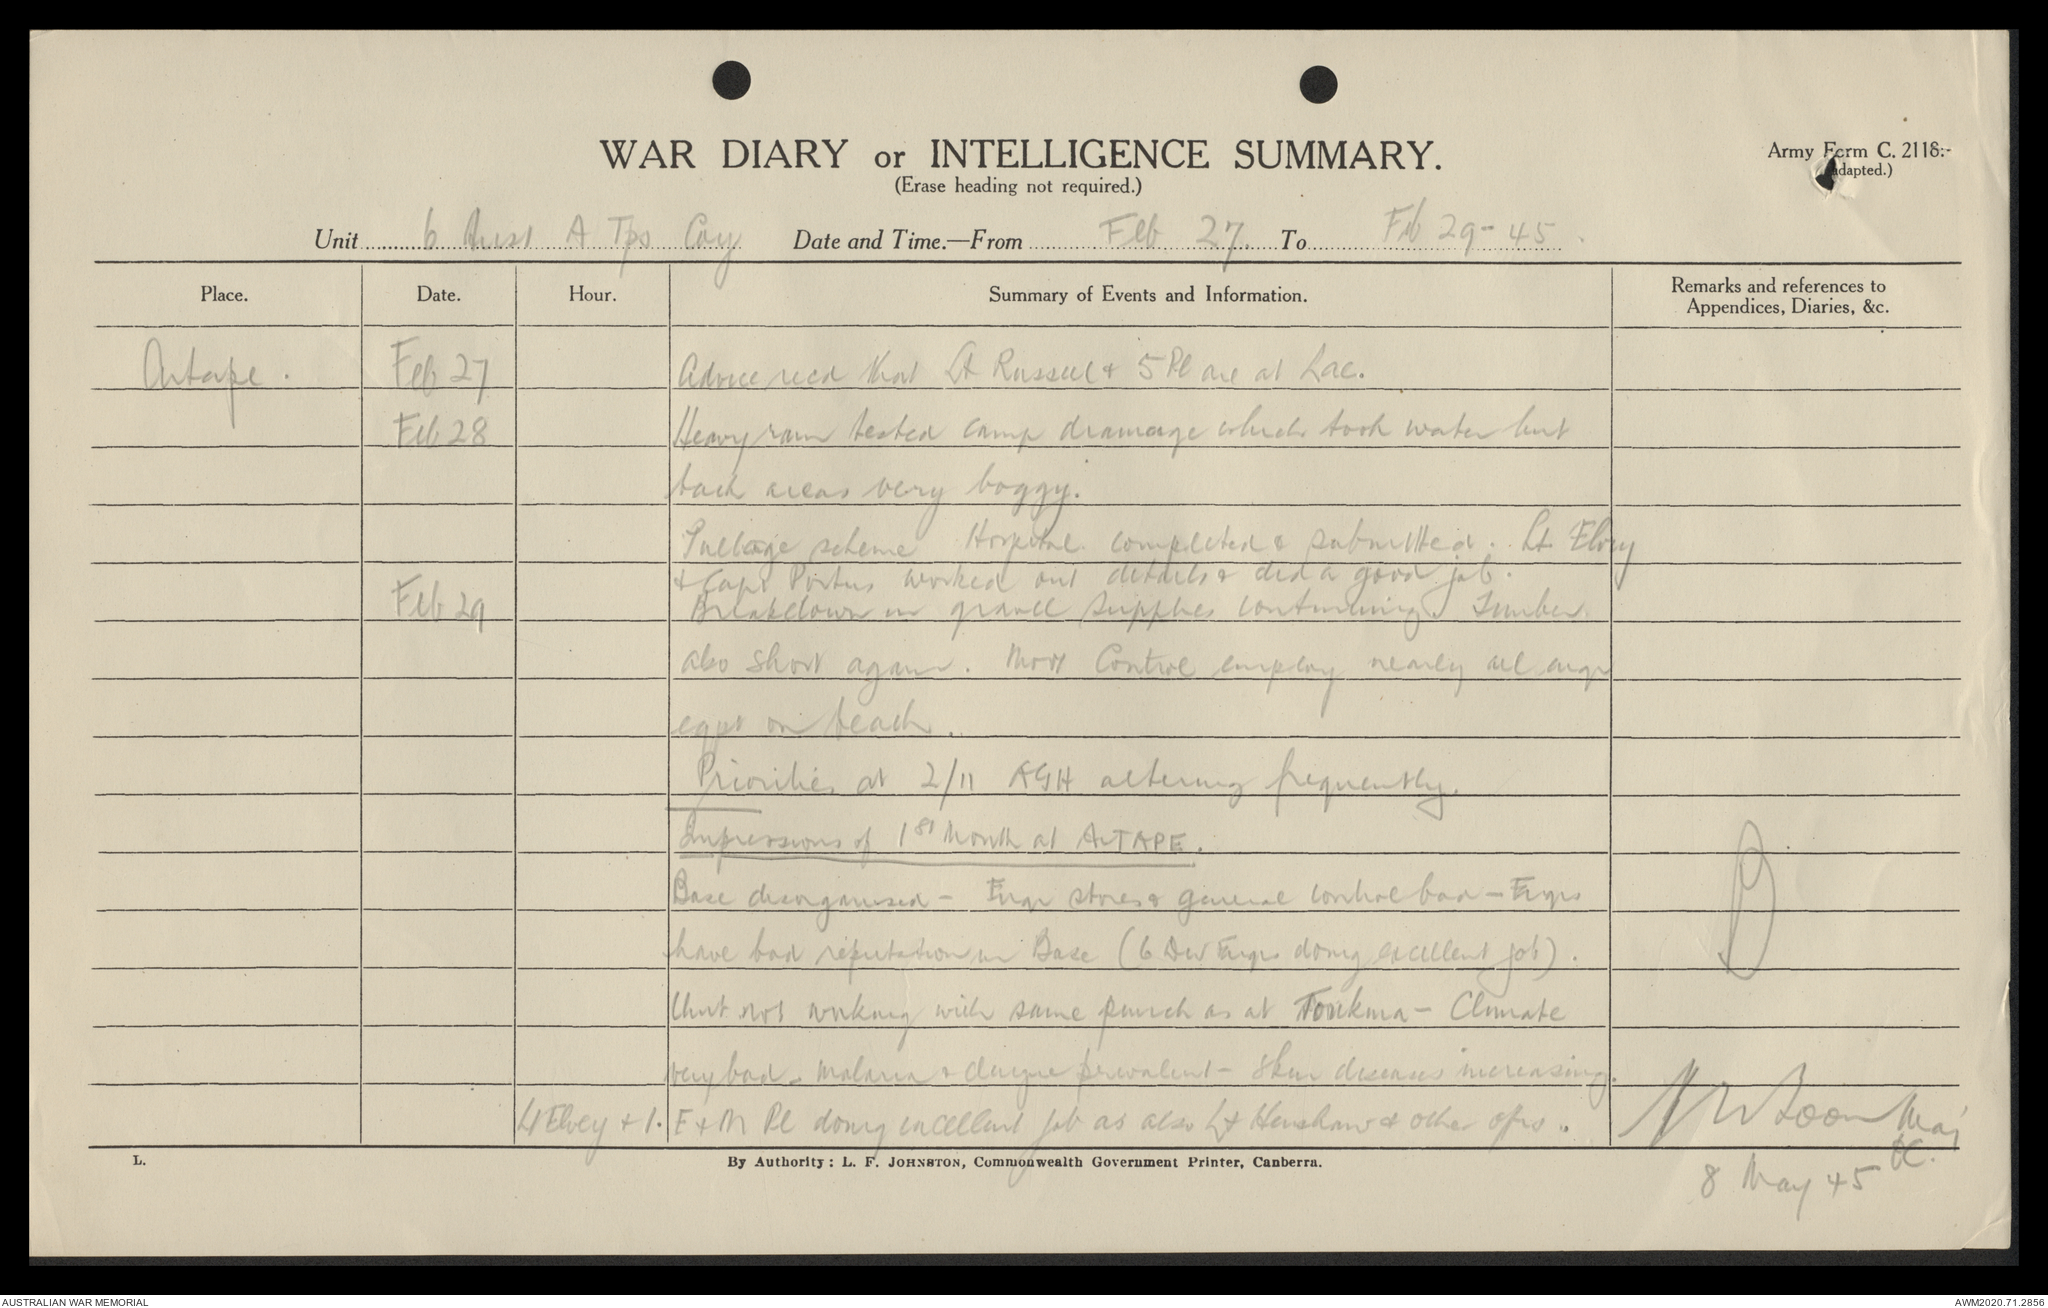 WAR DIARY or INTELLIGENCE SUMMARY.
(Erase heading not required.)
Army Form C. 2118.
(adapted.)
Unit 6 Aust A Tps Coy Date and Time.—From Feb 27. To Feb 29-45.
Place. Date. Hour. Summary of Events and Information. Remarks and references to Appendices, Diaries, &c.
Aitape. Feb 27 Advice recd that Lt Russell & 5 Pl are at Lae.
Feb 28 Heavy rain tested camp drainage which took water but
back areas very boggy.
scheme Hospital completed & submitted. Lt Elvey
& Capt Portus worked out details & did a good job.
Feb 29 Breakdown in gravel supplies continuing. Timber
also short again. Mov Control employ nearly all engr
eqpt on beach.
Priorities at 2/11 AGH altering frequently.
Impressions of 1st Month at AITAPE.
Base disorganised - Engr stores & general control bad - Engrs
have bad reputation in Base (6 Div Engrs doing excellent job).
Unit not working with same punch as at - Climate
very bad. Malaria & dengue prevalent - Skin diseases increasing.
Lt Elvey & 1. E & M Pl doing excellent job as also Lt Henshaw & other offrs.
Maj
OC.
8 May 45
L.
By Authority: L. F. JOHNSTON, Commonwealth Government Printer, Canberra.
AUSTRALIAN WAR MEMORIAL
AWM2020.71.2856